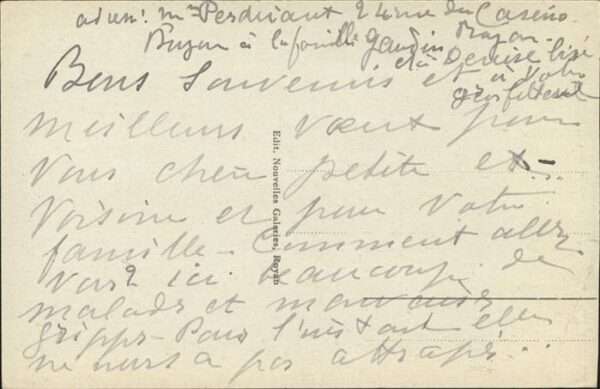 adress: Mme Perdriant 24 rue du Casino
Royan à la famille Gaudin Royan
et à Denise
Bons Souvenirs et à votre
meilleurs vœux pour
vous chère petite et
voisine et pour votre
famille - Comment allez
vous? ici beaucoup de
malades et mauvaise
grippe - Pour l'instant elle
ne nous a pas attrapés...
Edit. Nouvelles Galeries, Royan